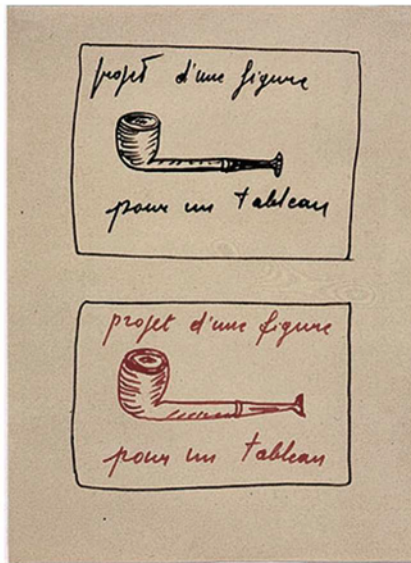 projet d'une figure
pour un tableau
projet d'une figure
pour un tableau